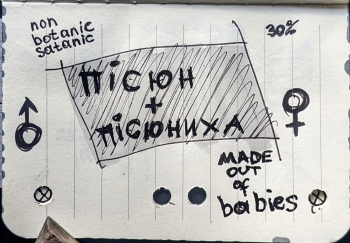 non
botanic
satanic
30%
пісюн
+
пісюниха
♂
♀
MADE
OUT
of
babies